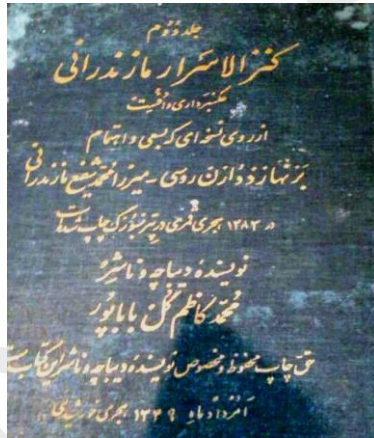 جلد دوم
کنز الاسرار مازندرانی
عکسبرداری و افست
از روی نسخه‌ای که بسعی و اهتمام
برنهارد دارن روسی - میرزا محمد شفیع مازندرانی
در ۱۲۸۳ هجری قمری در پترزبورگ چاپ شده است
نویسنده دیباچه و ناشر
محمد کاظم گل باباپور
حق چاپ محفوظ و مخصوص نویسنده دیباچه و ناشر این کتاب است
امرداد ماه ۱۳۴۹ هجری خورشیدی